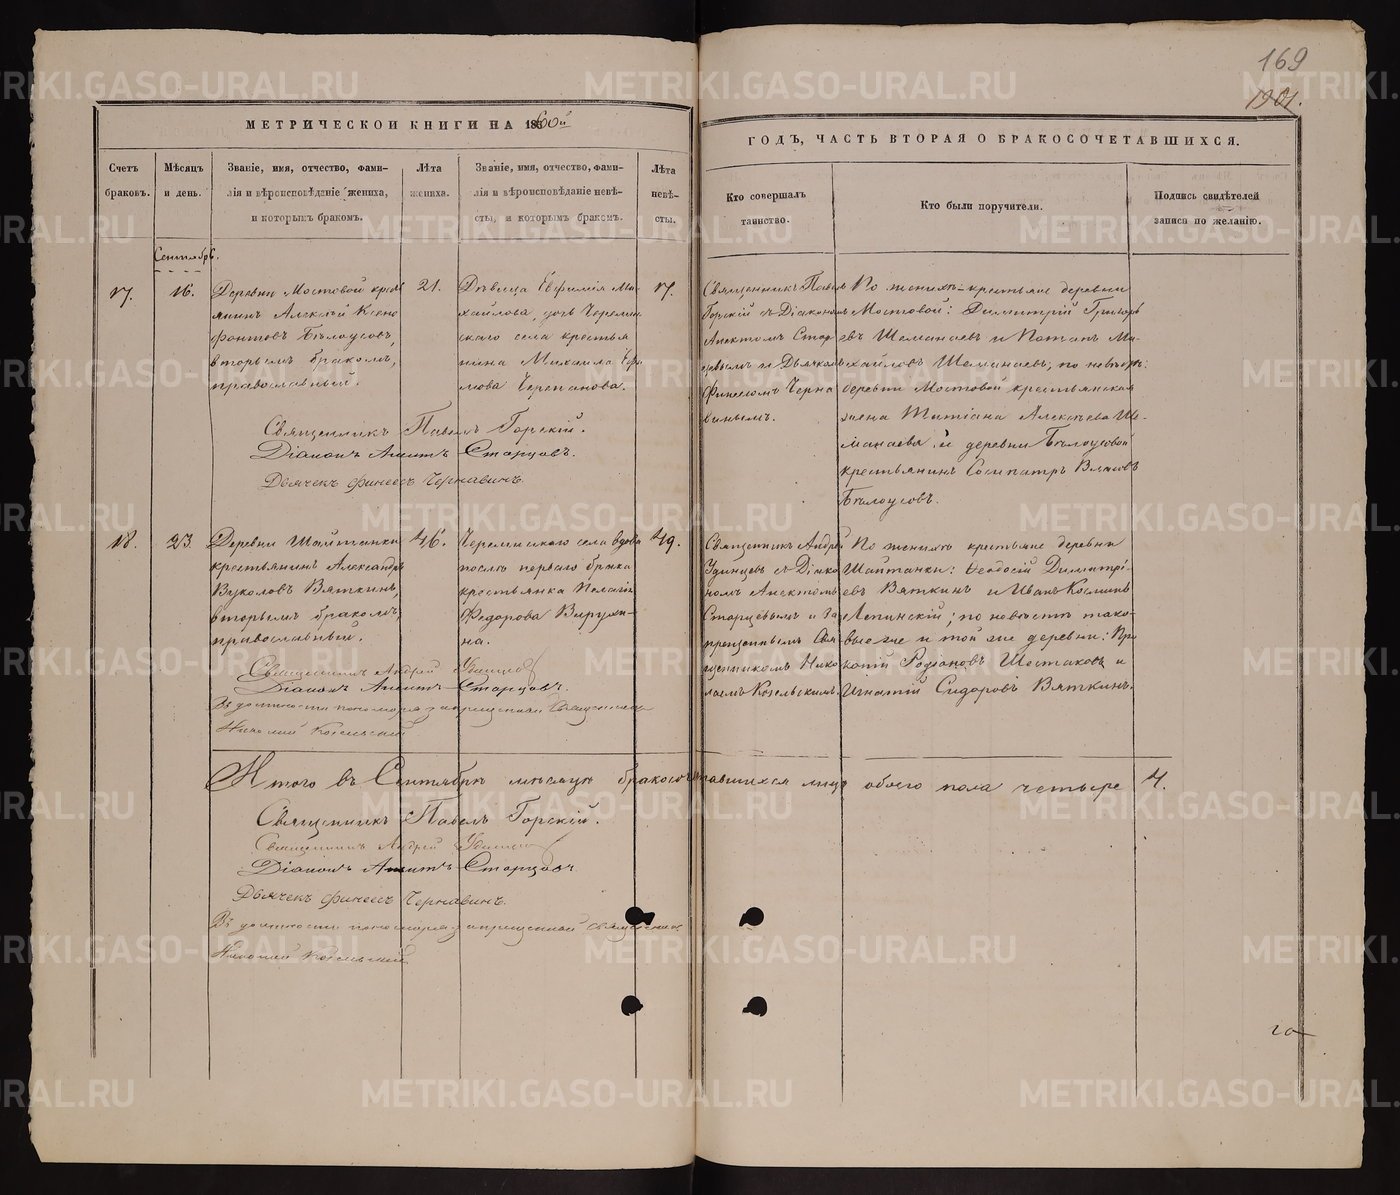 169
1901.
МЕТРИЧЕСКОЙ КНИГИ НА 1860й
ГОДЪ, ЧАСТЬ ВТОРАЯ О БРАКОСОЧЕТАВШИХСЯ.
Счетъ
браковъ.
Мѣсяцъ
и день.
Званіе, имя, отчество, фами-
лія и вѣроисповѣданіе жениха,
и которымъ бракомъ.
Лѣта
жениха.
Званіе, имя, отчество, фами-
лія и вѣроисповѣданіе невѣ-
сты, и которымъ бракомъ.
Лѣта
невѣ-
сты.
Кто совершалъ
таинство.
Кто были поручители.
Подпись свидѣтелей
записи по желанію.
Сентябрь.
17.
16.
Деревни Мостовой кресть
янинъ Алексѣй Ксено
фонтовъ Бѣлоусовъ,
вторымъ бракомъ,
православный.
21.
Дѣвица Евфимія Ми-
хайлова, дочь Черемис
скаго села крестья
нина Михаила
Черепанова.
17.
Священникъ Павелъ
Горскій съ Діакономъ
Аниктомъ Стар
цовымъ и Дьячкомъ
Финеесомъ Черна
винымъ.
По женихѣ крестьяне деревни
Мостовой: Димитрій Григорь
евъ Шеманаевъ и Потапъ Ми-
хайловъ Шеманаевъ, по невѣстѣ:
деревни Мостовой крестьянская
жена Татіана Алексѣева Ше-
манаева и деревни Бѣлоусовой
крестьянинъ Сосипатръ Власовъ
Бѣлоусовъ.
Священникъ Павелъ Горскій.
Діаконъ Аникитъ Старцовъ.
Дьячекъ Финеесъ Чернавинъ.
18.
23.
Деревни Шайтанки
крестьянинъ Александръ
Вуколовъ Вяткинъ,
вторымъ бракомъ,
православный.
46.
Черемисскаго села вдова
послѣ перваго брака
крестьянка Пелагія
Федорова
49.
Священникъ Андрей
Удинцевъ съ Діако
номъ Аникитомъ
Старцовымъ и за
прещеннымъ Свя
щенникомъ Нико
лаемъ Козельскимъ.
По женихѣ крестьяне деревни
Шайтанки: Ѳеодосій Димитрі-
евъ Вяткинъ и Иванъ Козминъ
Лепинскій; по невѣстѣ тако-
вые же и той же деревни: Про
копій Родіоновъ Шестаковъ и
Игнатій Сидоровъ Вяткинъ.
Священникъ Андрей Удинцевъ
Діаконъ Аникитъ Старцовъ.
Въ должности пономаря запрещенный Священникъ
Николай Козельскій
Итого въ Сентябрѣ мѣсяцѣ бракосочетавшихся лицъ обоего пола четыре 4.
Священникъ Павелъ Горскій.
Священникъ Андрей Удинцевъ
Діаконъ Аникитъ Старцовъ.
Дьячекъ Финеесъ Чернавинъ.
Въ должности пономаря запрещенный Священникъ
Николай Козельскій
METRIKI.GASO-URAL.RU